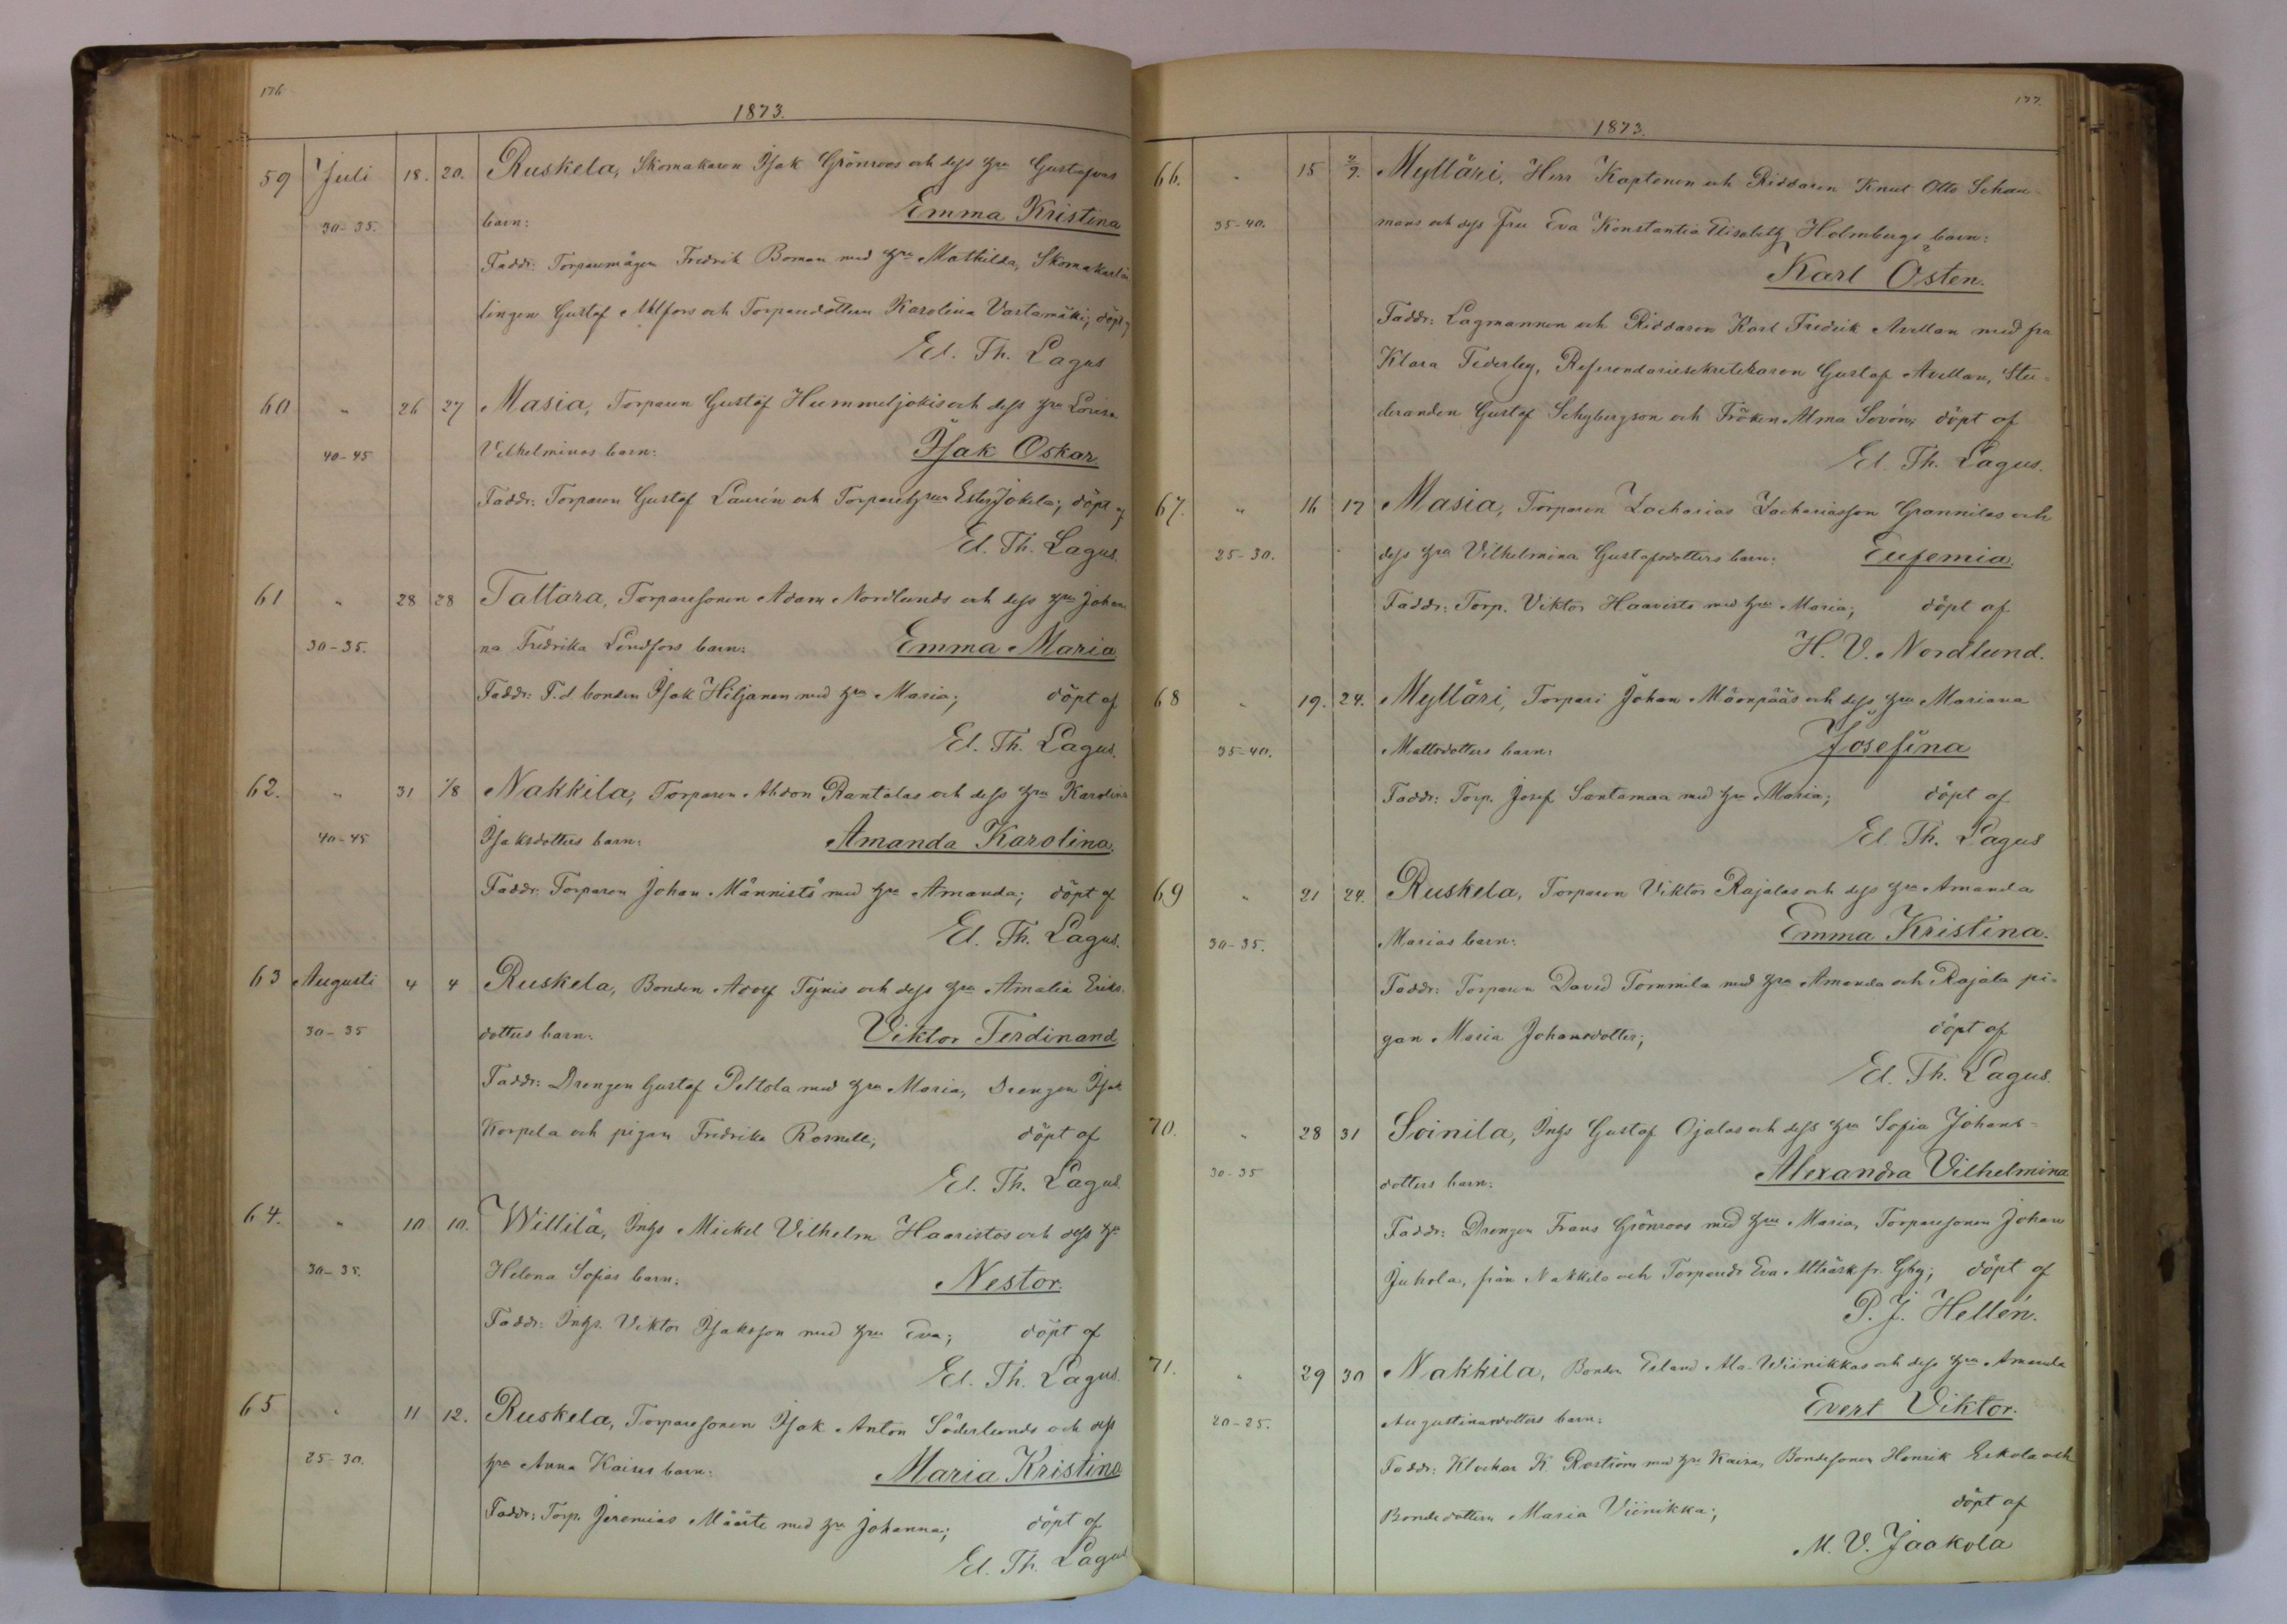 176
1873.
59 Juli 18. 20. Ruskela, Skomakaren Isak Grönroos och dess hru Gustafvas
30-35. barn: Emma Kristina
Faddr: Torparemågen Fredrik Boman med hru Mathilda, Skomakarlär
lingen Gustaf Ahlfors och Torparedottern Karolina Vartamäki; döpt af
El. Th. Lagus
60 " 26 27 Masia, Torparen Gustaf Hummeljokis och dess hru Lovisa
40-45 Vilhelminas barn: Isak Oskar.
Faddr: Torparen Gustaf Laurén och Torparehrun Ester Jokela; döpt af
El. Th. Lagus.
61 " 28 28 Tattara, Torparesonen Adam Nordlunds och dess hru Johan
30-35. na Fredrika Lindfors barn: Emma Maria
Faddr: F.d. bonden Isak Hiljanen med hru Maria; döpt af
El. Th. Lagus.
62. " 31 1/8 Nakkila, Torparen Ahdon Rantalas och dess hru Karolina
40-45 Isaksdotters barn: Amanda Karolina.
Faddr: Torparen Johan Männistö med hru Amanda; döpt af
El. Th. Lagus.
63 Augusti 4 4 Ruskela, Bonden Adolf Tynis och dess hru Amalia Eriks-
30-35 dotters barn: Viktor Ferdinand
Faddr: Drengen Gustaf Peltola med hru Maria, Drengen Isak
Korpela och pigan Fredrika Rosnell; döpt af
El. Th. Lagus.
64. " 10 10. Willilä, Inhs Mickel Vilhelm Haaristos och dess hru
30-35. Helena Sofias barn: Nestor.
Faddr: Inhs. Viktor Isaksson med hru Eva; döpt af
El. Th. Lagus.
65 " 11 12. Ruskela, Torparesonen Isak Anton Söderlunds och dess
25-30. hru Anna Kaisas barn: Maria Kristina
Faddr: Torp. Jeremias Määttä med hru Johanna; döpt af
El. Th. Lagus
177.
1873.
66. " 15 2/9. Mylläri, Herr Kaptenen och Riddaren Knut Otto Schau-
35-40. mans och dess Fru Eva Konstantia Elisabeth Holmbergs barn:
Karl Östen.
Faddr: Lagmannen och Riddaren Karl Fredrik Avellan med fru
Klara Federley, Referendariesekreteraren Gustaf Avellan, Stu-
deranden Gustaf Schybergson och Fröken Alma Sovón; döpt af
El. Th. Lagus.
67. " 16 17 Masia, Torparen Zacharias Zachariasson Grannilas och
25-30. dess hru Vilhelmina Gustafsdotters barn: Eufemia.
Faddr: Torp. Viktor Haavisto med hru Maria; döpt af
H. V. Nordlund.
68 " 19. 24. Mylläri, Torpari Johan Mäenpääs och dess hru Mariana
35-40. Mattsdotters barn: Josefina
Faddr: Torp. Josef Santamaa med hru Maria; döpt af
El. Th. Lagus
69 " 21 24. Ruskela, Torparen Viktor Rajalas och dess hru Amanda
30-35. Marias barn: Emma Kristina.
Faddr: Torparen David Tommila med hru Amanda och Rajala pi-
gan Maria Johansdotter; döpt af
El. Th. Lagus.
70. " 28 31 Soinila, Inhs Gustaf Ojalas och dess hru Sofia Johans-
30-35 dotters barn: Alexandra Vilhelmina
Faddr: Drengen Frans Grönroos med hru Maria, Torparesonen Johan
Juhola, från Nakkila och Torparedr Eva Mträsk fr. Gby; döpt af
P. J. Hellén.
71. " 29 30 Nakkila, Bonden Erland Ala-Wiinikkas och dess hru Amanda
20-25. Augustinasdotters barn: Evert Viktor.
Faddr: Klockar K. Roström med hru Kaisa, Bondesonen Henrik Eskola och
Bondedottern Maria Viinikka; döpt af
M. V. Jaakola